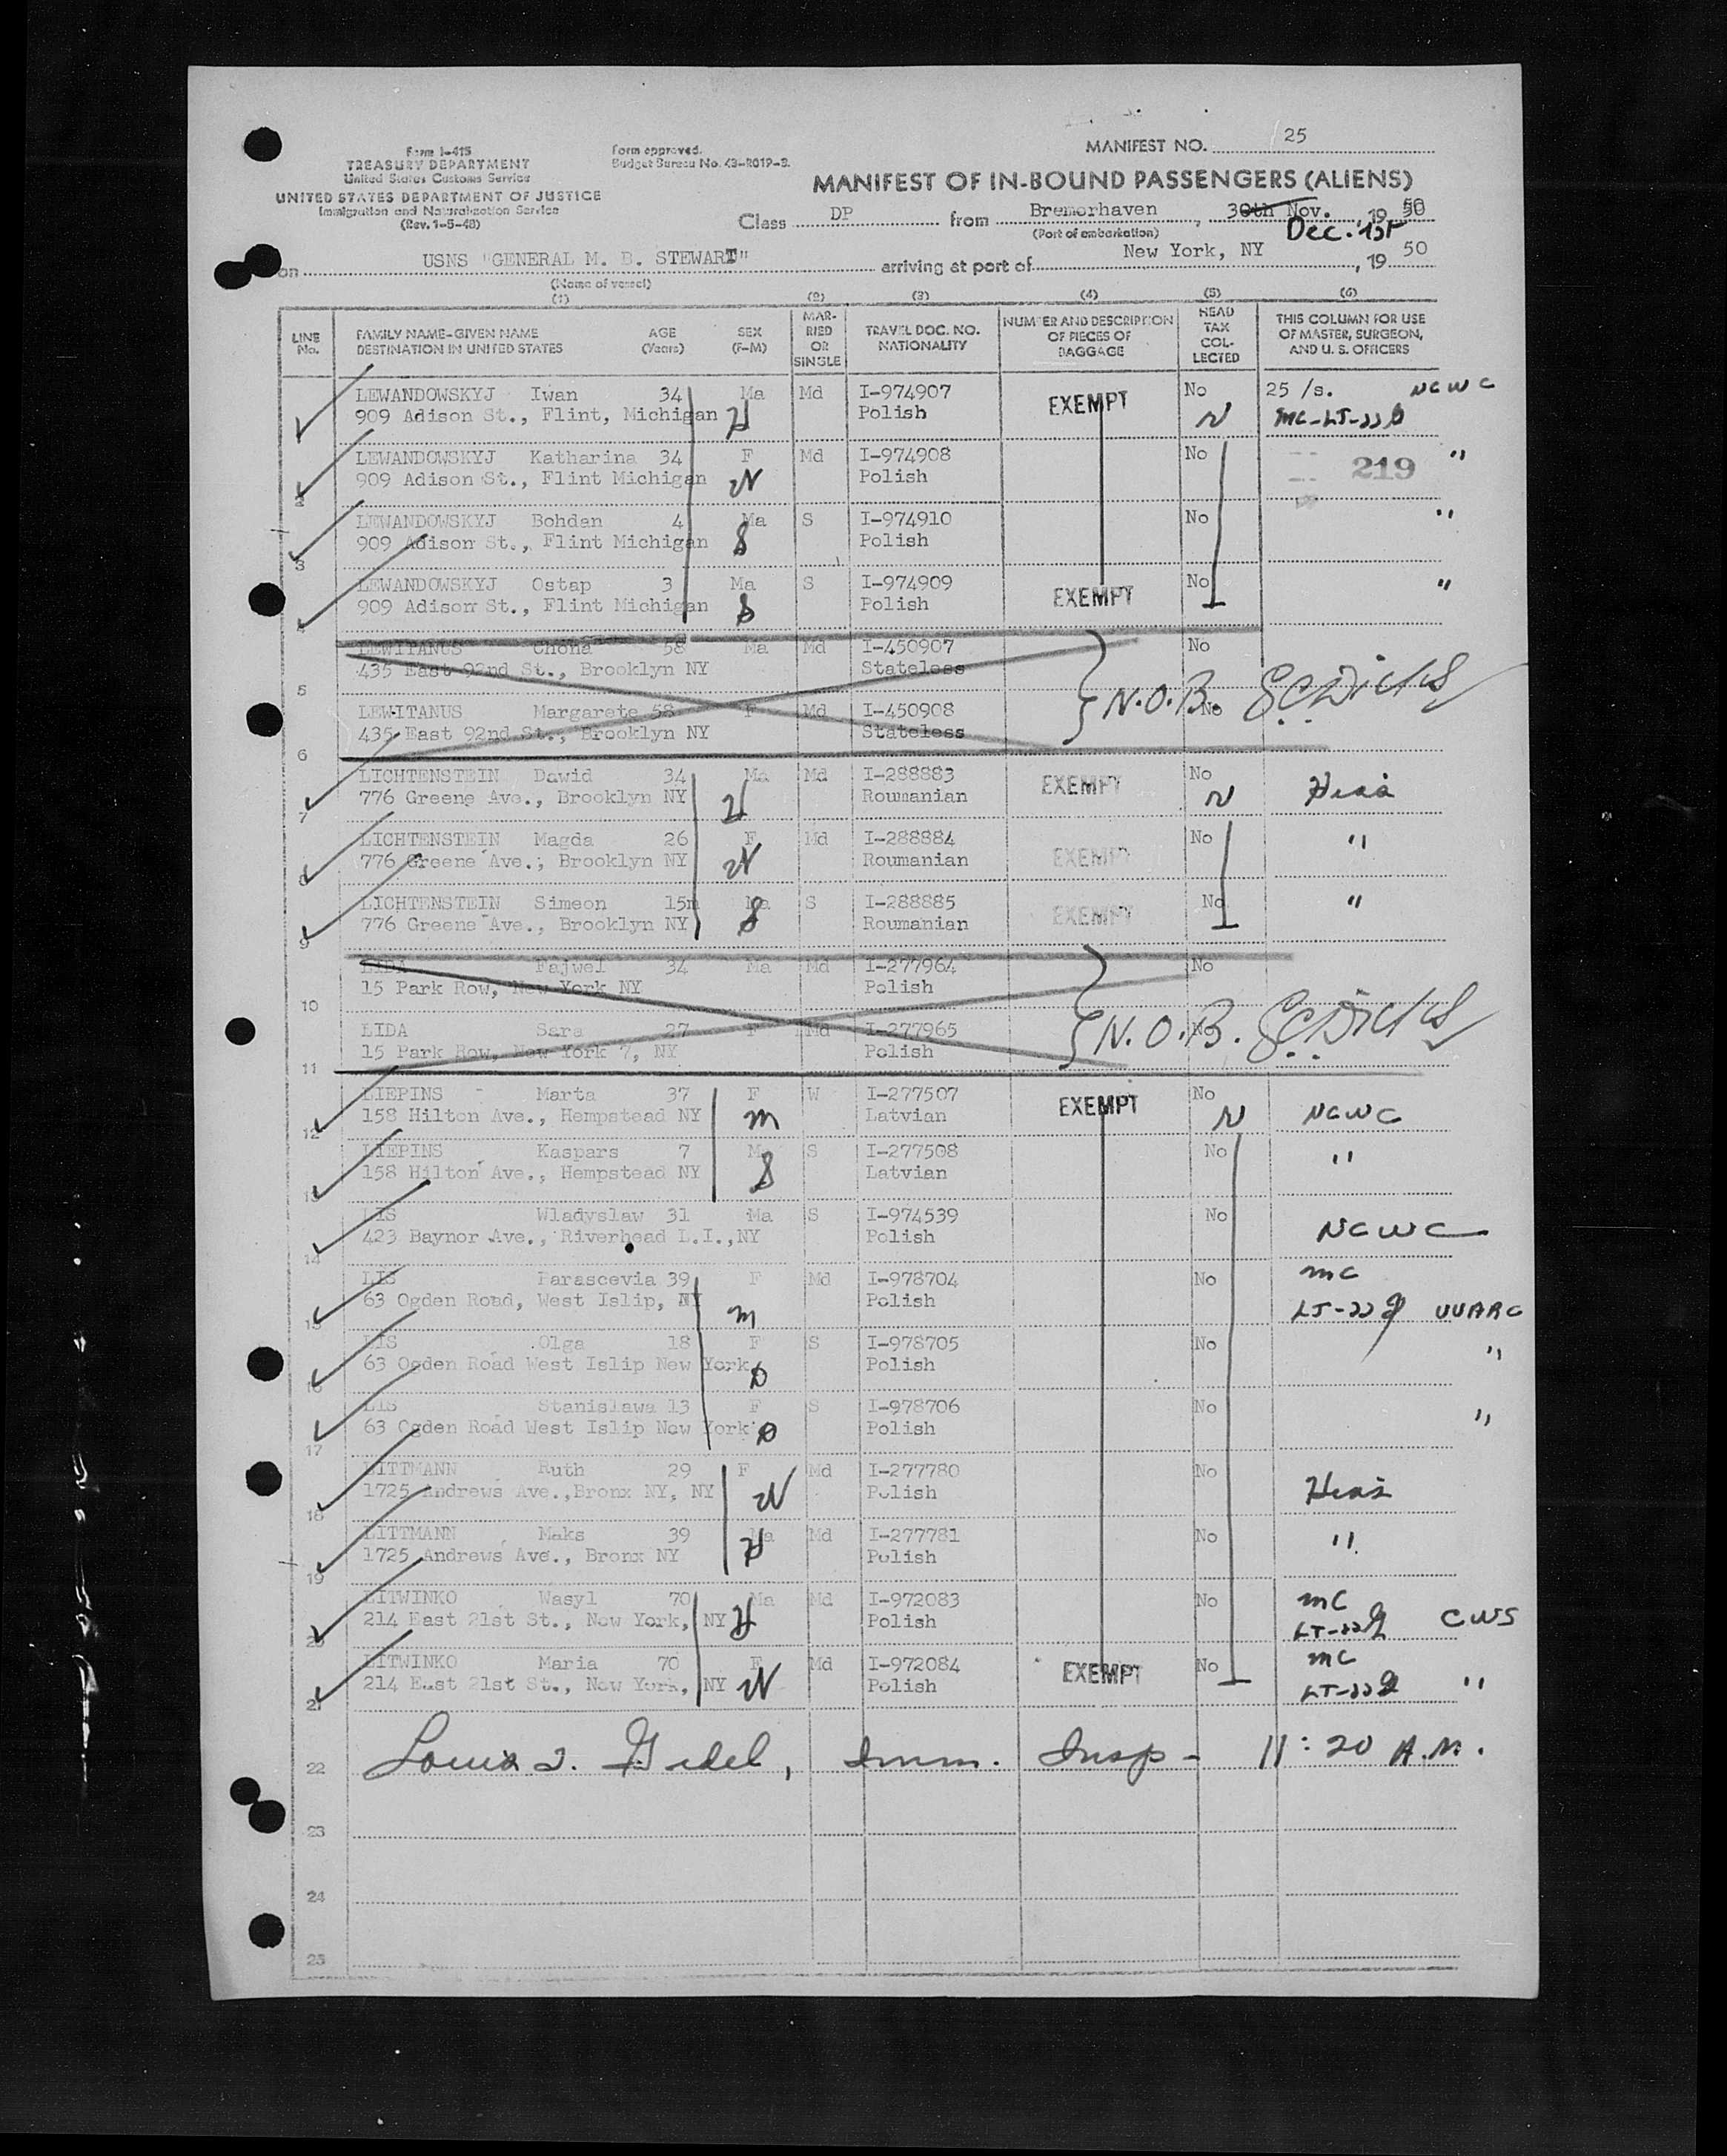 MANIFEST NO. 25
Form I-415
TREASURY DEPARTMENT
United States Customs Service
UNITED STATES DEPARTMENT OF JUSTICE
Immigration and Naturalization Service
(Rev. 1-5-48)
Form approved.
Budget Bureau No. 43-R019-3.
MANIFEST OF IN-BOUND PASSENGERS (ALIENS)
Class DP from Bremerhaven, 30th Nov., 19 50
(Port of embarkation) Dec. 1st
on USNS "GENERAL M. B. STEWART" arriving at port of New York, NY, 19 50
(Name of vessel)
(1) (2) (3) (4) (5) (6)
LINE No. FAMILY NAME-GIVEN NAME DESTINATION IN UNITED STATES AGE (Years) SEX (F-M) MARRIED OR SINGLE TRAVEL DOC. NO. NATIONALITY NUMBER AND DESCRIPTION OF PIECES OF BAGGAGE HEAD TAX COLLECTED THIS COLUMN FOR USE OF MASTER, SURGEON, AND U. S. OFFICERS
LEWANDOWSKYJ Iwan 34 Ma Md I-974907 EXEMPT No 25 /s. NCWC
909 Adison St., Flint, Michigan H Polish N MC-LT-22
LEWANDOWSKYJ Katharina 34 F Md I-974908 No 219 "
2 909 Adison St., Flint Michigan W Polish
LEWANDOWSKYJ Bohdan 4 Ma S I-974910 No "
3 909 Adison St., Flint Michigan S Polish
LEWANDOWSKYJ Ostap 3 Ma S I-974909 EXEMPT No "
4 909 Adison St., Flint Michigan S Polish
LEWITANUS Chona 58 Ma Md I-450907 No
5 435 East 92nd St., Brooklyn NY Stateless N.O.B.
LEWITANUS Margarete 58 F Md I-450908 No
6 435 East 92nd St., Brooklyn NY Stateless
LICHTENSTEIN Dawid 34 Ma Md I-288883 EXEMPT No Hias
7 776 Greene Ave., Brooklyn NY H Roumanian N
LICHTENSTEIN Magda 26 F Md I-288884 EXEMPT No "
8 776 Greene Ave., Brooklyn NY W Roumanian
LICHTENSTEIN Simeon 15m Ma S I-288885 EXEMPT No "
9 776 Greene Ave., Brooklyn NY S Roumanian
LIDA Fajwel 34 Ma Md I-277964 No
10 15 Park Row, New York NY Polish N.O.B.
LIDA Sara 27 F Md I-277965 No
11 15 Park Row, New York 7, NY Polish
LIEPINS Marta 37 F W I-277507 EXEMPT No NCWC
12 158 Hilton Ave., Hempstead NY M Latvian N
LIEPINS Kaspars 7 Ma S I-277508 No "
13 158 Hilton Ave., Hempstead NY S Latvian
LIS Wladyslaw 31 Ma S I-974539 No NCWC
14 423 Baynor Ave., Riverhead L.I.,NY Polish
LIS Parascevia 39 F Md I-978704 No MC
15 63 Ogden Road, West Islip, NY M Polish LT-22 UUARC
LIS Olga 18 F S I-978705 No "
16 63 Ogden Road West Islip New York D Polish
LIS Stanislawa 13 F S I-978706 No "
17 63 Ogden Road West Islip New York D Polish
LITTMANN Ruth 29 F Md I-277780 No Hias
18 1725 Andrews Ave.,Bronx NY, NY W Polish
LITTMANN Maks 39 Ma Md I-277781 No "
19 1725 Andrews Ave., Bronx NY H Polish
LITWINKO Wasyl 70 Ma Md I-972083 No MC
20 214 East 21st St., New York, NY H Polish LT-22 CWS
LITWINKO Maria 70 F Md I-972084 EXEMPT No MC
21 214 East 21st St., New York, NY W Polish LT-22 "
22 Louis Imm. Insp - 11:20 A.M.
23
24
25